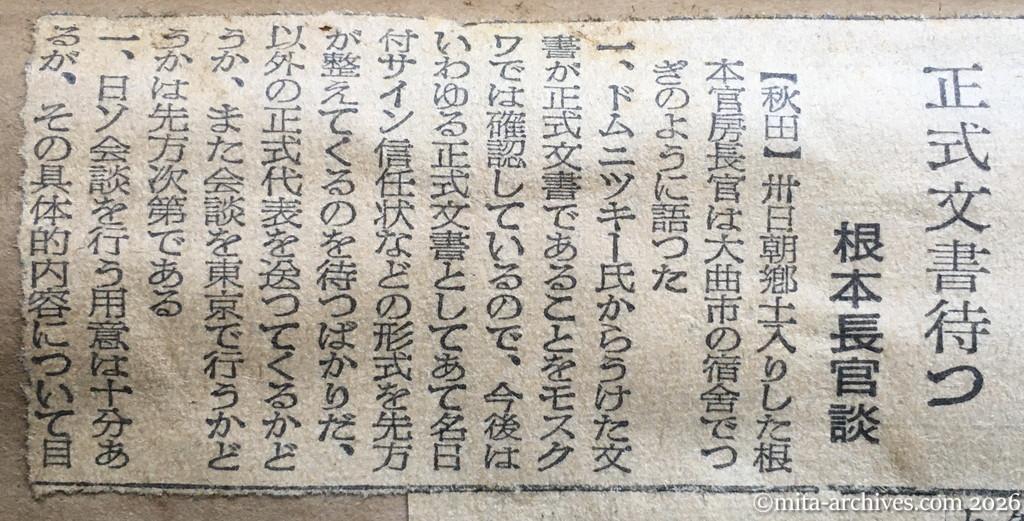 正式文書待つ
根本長官談
【秋田】卅日朝郷土入りした根
本官房長官は大曲市の宿舎でつ
ぎのように語つた
一、ドムニツキー氏からうけた文
書が正式文書であることをモスク
ワでは確認しているので、今後は
いわゆる正式文書としてあて名日
付サイン信任状などの形式を先方
が整えてくるのを待つばかりだ、
以外の正式代表を送つてくるかど
うか、また会談を東京で行うかど
うかは先方次第である
一、日ソ会談を行う用意は十分あ
るが、その具体的内容について目
©mita-archives.com 2026